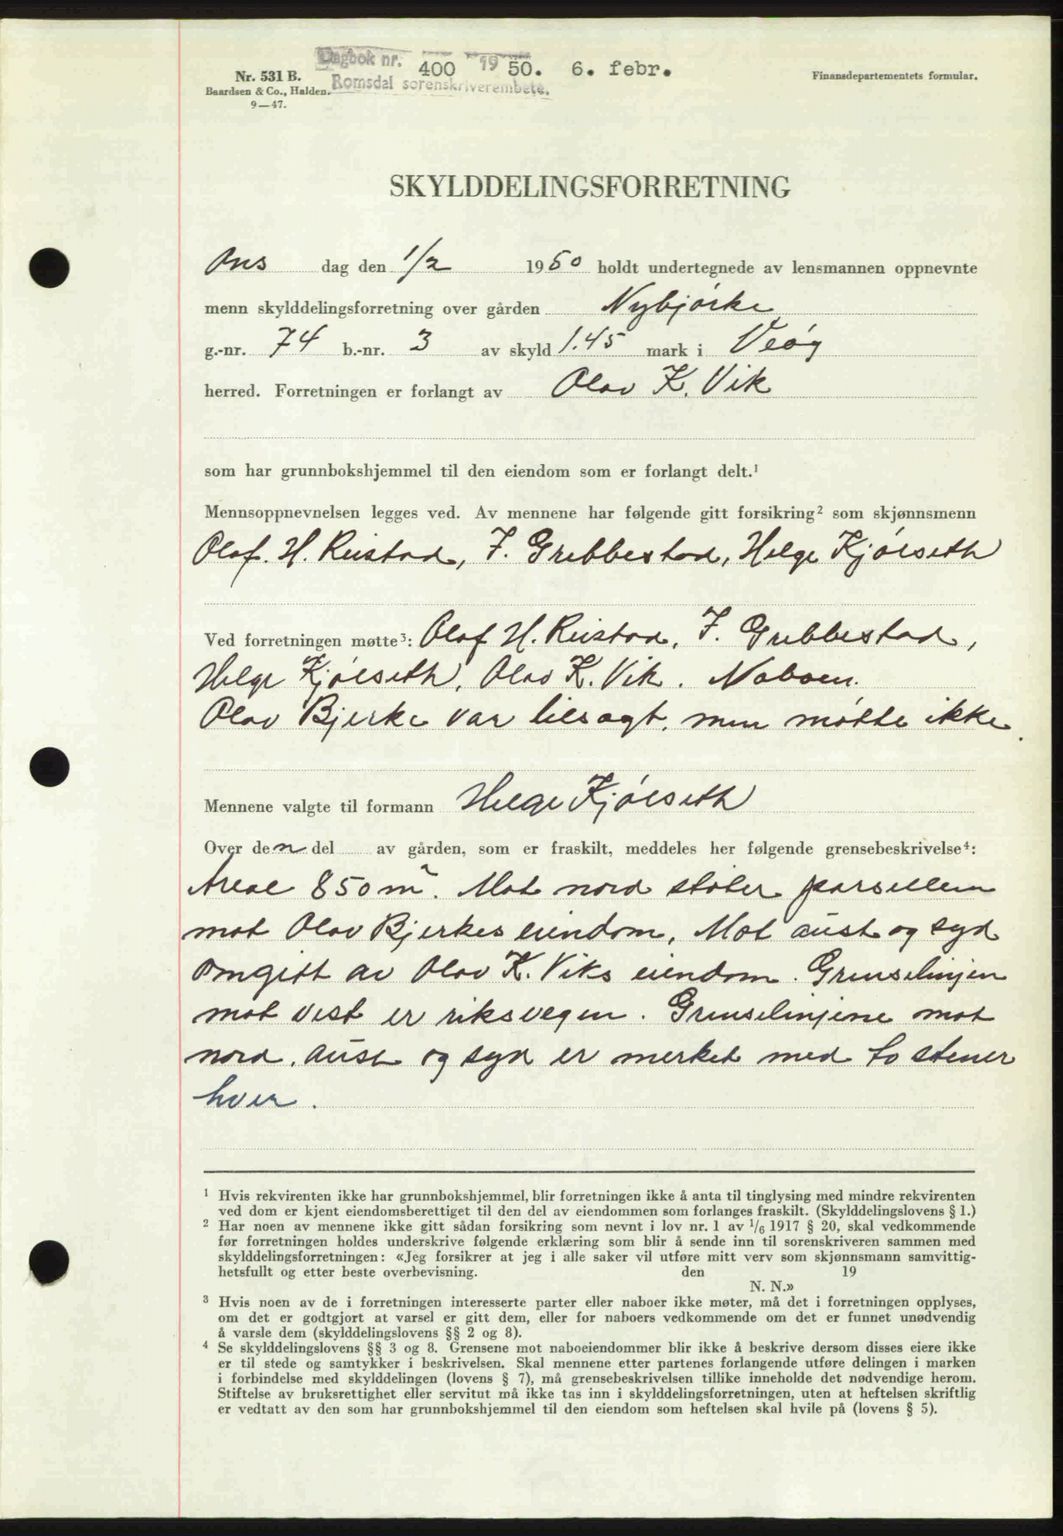 Dagbok nr. 400 1950. 6. febr.
Romsdal sorenskriverembete.
Nr. 531 B.
Baardsen & Co., Halden.
9—47.
Finansdepartementets formular.
SKYLDDELINGSFORRETNING
Ons dag den 1/2 1950 holdt undertegnede av lensmannen oppnevnte
menn skylddelingsforretning over gården Nybjørke
g.-nr. 74 b.-nr. 3 av skyld 1.45 mark i Veøy
herred. Forretningen er forlangt av Olav K. Vik
som har grunnbokshjemmel til den eiendom som er forlangt delt.¹
Mennsoppnevnelsen legges ved. Av mennene har følgende gitt forsikring² som skjønnsmenn
Olaf. H. Reistad, F. Grebbestad, Helge Kjølseth
Ved forretningen møtte³: Olaf H. Reistad, F. Grebbestad,
Helge Kjølseth, Olav K. Vik. Naboen.
Olav Bjerke var tilsagt, men møtte ikke.
Mennene valgte til formann Helge Kjølseth
Over den del av gården, som er fraskilt, meddeles her følgende grensebeskrivelse⁴:
Areal 850 m². Mot nord støter parsellen
mot Olav Bjerkes eiendom, Mot aust og syd
omgitt av Olav K. Viks eiendom. Grenselinjen
mot vest er riksvegen. Grenselinjene mot
nord, aust og syd er merket med to stener
hver.
¹ Hvis rekvirenten ikke har grunnbokshjemmel, blir forretningen ikke å anta til tinglysing med mindre rekvirenten
ved dom er kjent eiendomsberettiget til den del av eiendommen som forlanges fraskilt. (Skylddelingslovens § 1.)
² Har noen av mennene ikke gitt sådan forsikring som nevnt i lov nr. 1 av 1/6 1917 § 20, skal vedkommende
før forretningen holdes underskrive følgende erklæring som blir å sende inn til sorenskriveren sammen med
skylddelingsforretningen: «Jeg forsikrer at jeg i alle saker vil utføre mitt verv som skjønnsmann samvittig-
hetsfullt og etter beste overbevisning. den 19
N. N.»
³ Hvis noen av de i forretningen interesserte parter eller naboer ikke møter, må det i forretningen opplyses,
om det er godtgjort at varsel er gitt dem, eller for naboers vedkommende om det er funnet unødvendig
å varsle dem (skylddelingslovens §§ 2 og 8).
⁴ Se skylddelingslovens §§ 3 og 8. Grensene mot naboeiendommer blir ikke å beskrive dersom disses eiere ikke
er til stede og samtykker i beskrivelsen. Skal mennene etter partenes forlangende utføre delingen i marken
i forbindelse med skylddelingen (lovens § 7), må grensebeskrivelsen tillike inneholde det nødvendige herom.
Stiftelse av bruksrettighet eller servitut må ikke tas inn i skylddelingsforretningen, uten at heftelsen skriftlig
er vedtatt av den som har grunnbokshjemmel til den eiendom som heftelsen skal hvile på (lovens § 5).